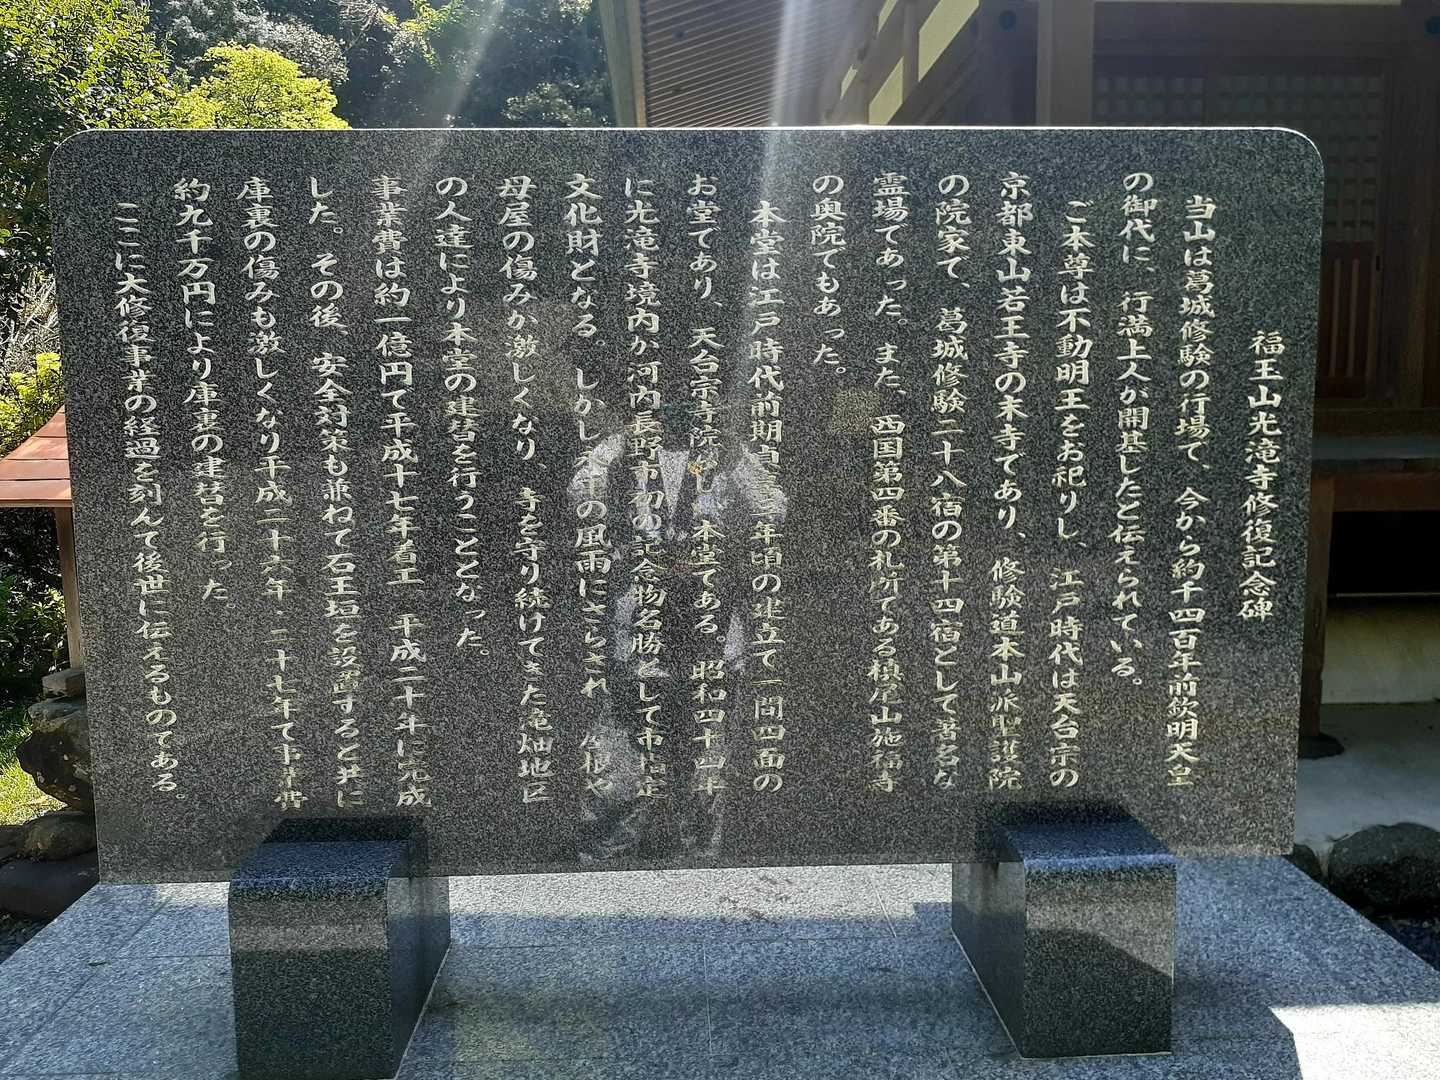 福玉山光滝寺修復記念碑
当山は葛城修験の行場で、今から約千四百年前欽明天皇
の御代に、行満上人が開基したと伝えられている。
ご本尊は不動明王をお祀りし、江戸時代は天台宗の
京都東山若王寺の末寺であり、修験道本山派聖護院
の院家で、葛城修験二十八宿の第十四宿として著名な
霊場であった。また、西国第四番の札所である槙尾山施福寺
の奥院でもあった。
本堂は江戸時代前期貞享三年頃の建立で一間四面の
お堂であり、天台宗寺院 本堂である。昭和四十四年
に光滝寺境内が河内長野市初の記念物名勝として市指定
文化財となる。しかし の風雨にさらされ 屋根や
母屋の傷みが激しくなり、寺を守り続けてきた滝畑地区
の人達により本堂の建替を行うこととなった。
事業費は約一億円で平成十七年着工 平成二十年に完成
した。その後、安全対策も兼ねて石玉垣を設置すると共に
庫裏の傷みも激しくなり平成二十六年・二十七年で事業費
約九千万円により庫裏の建替を行った。
ここに大修復事業の経過を刻んで後世に伝えるものである。